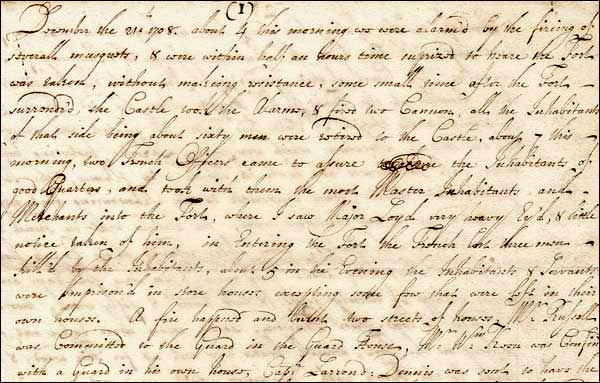 (1)
December the 21th 1708. about 4 this morning we were alarm'd by the fireing of
severall musquets, & were within half an hours time surprized to heare the Fort
was taken, without makeing resistance, some small time after the Fort
surrendr'd, the Castle took the Alarme, & fired two Cannon, all the Inhabitants
of that side being about sixty men were retired to the Castle, about 7 this
morning, two French Officers came to assure the Inhabitants of
good Quarters, and took with them the most Master Inhabitants and
Merchants into the Fort, where I saw Major Loyd very heavy Ey'd, & little
notice taken of him, in Entering the Fort the French lost three men
kill'd by the Inhabitants, about 5 in the Evening the Inhabitants & Servants
were Imprison'd in store houses excepting some few that were left in their
own houses. A fire happned and burnt two streets of houses, Mr.
was Committed to the Guard in the Guard House, Mr. Wm. Keen was Confin'd
with a Guard in his own house; Capt. Larrond: Dennis was sent to have the